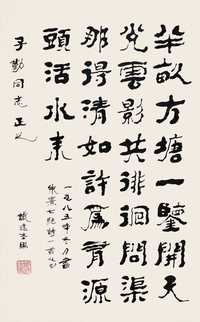 半畝方塘一鑒開天
光雲影共徘徊問渠
那得清如許為有源
頭活水來
一九八五年冬月書
朱熹七絕詩一首
子勤同志正之